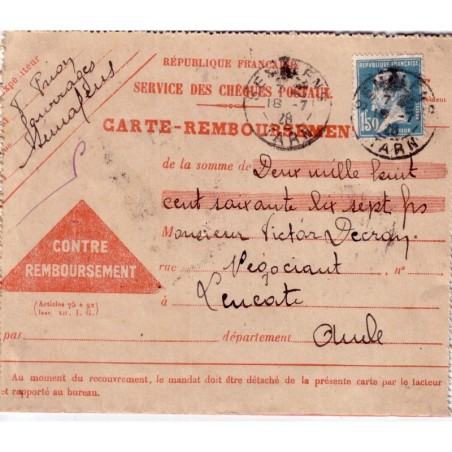 Expéditeur
RÉPUBLIQUE FRANÇAISE
SERVICE DES CHÈQUES POSTAUX
18 -7
28
TARN
1F50
TARN
CARTE-REMBOURSEMENT
de la somme de Deux mille huit
cent soixante dix sept frs
Monsieur Victor Decroy
CONTRE
REMBOURSEMENT
rue Négociant n°
à Leucate
(Articles 75 à 92
Inst. XII. I. G.)
par département Aude
Au moment du recouvrement, le mandat doit être détaché de la présente carte par le facteur
et rapporté au bureau.